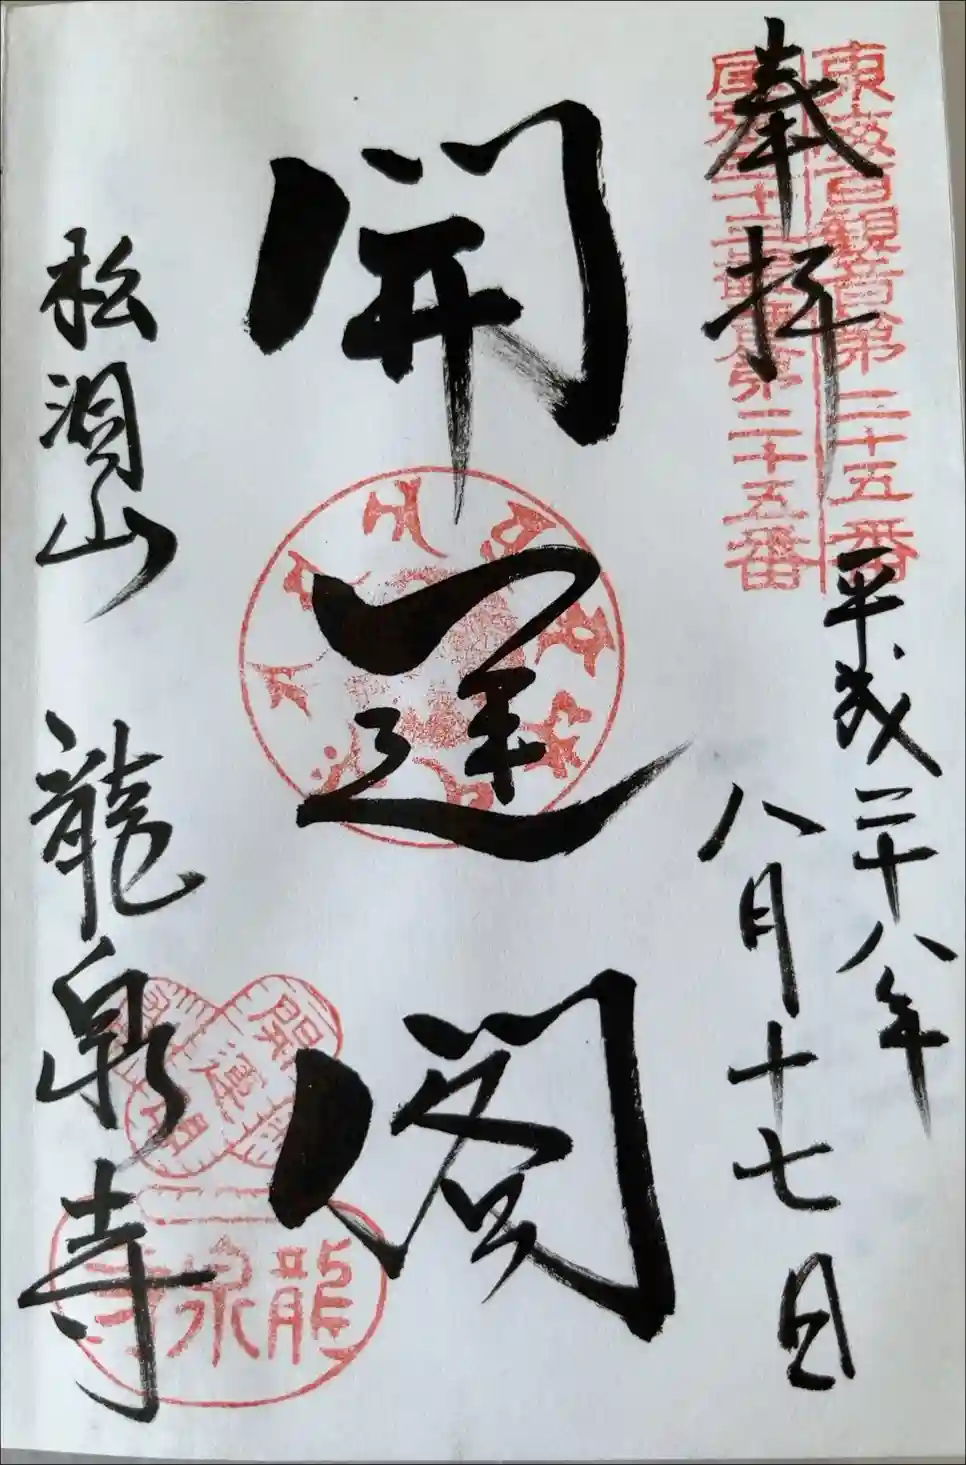 東海百観音第二十五番
尾張三十三観音第二十五番
奉拝
平成二十八年
八月十七日
開運閣
松洞山 龍泉寺
開運
龍泉寺